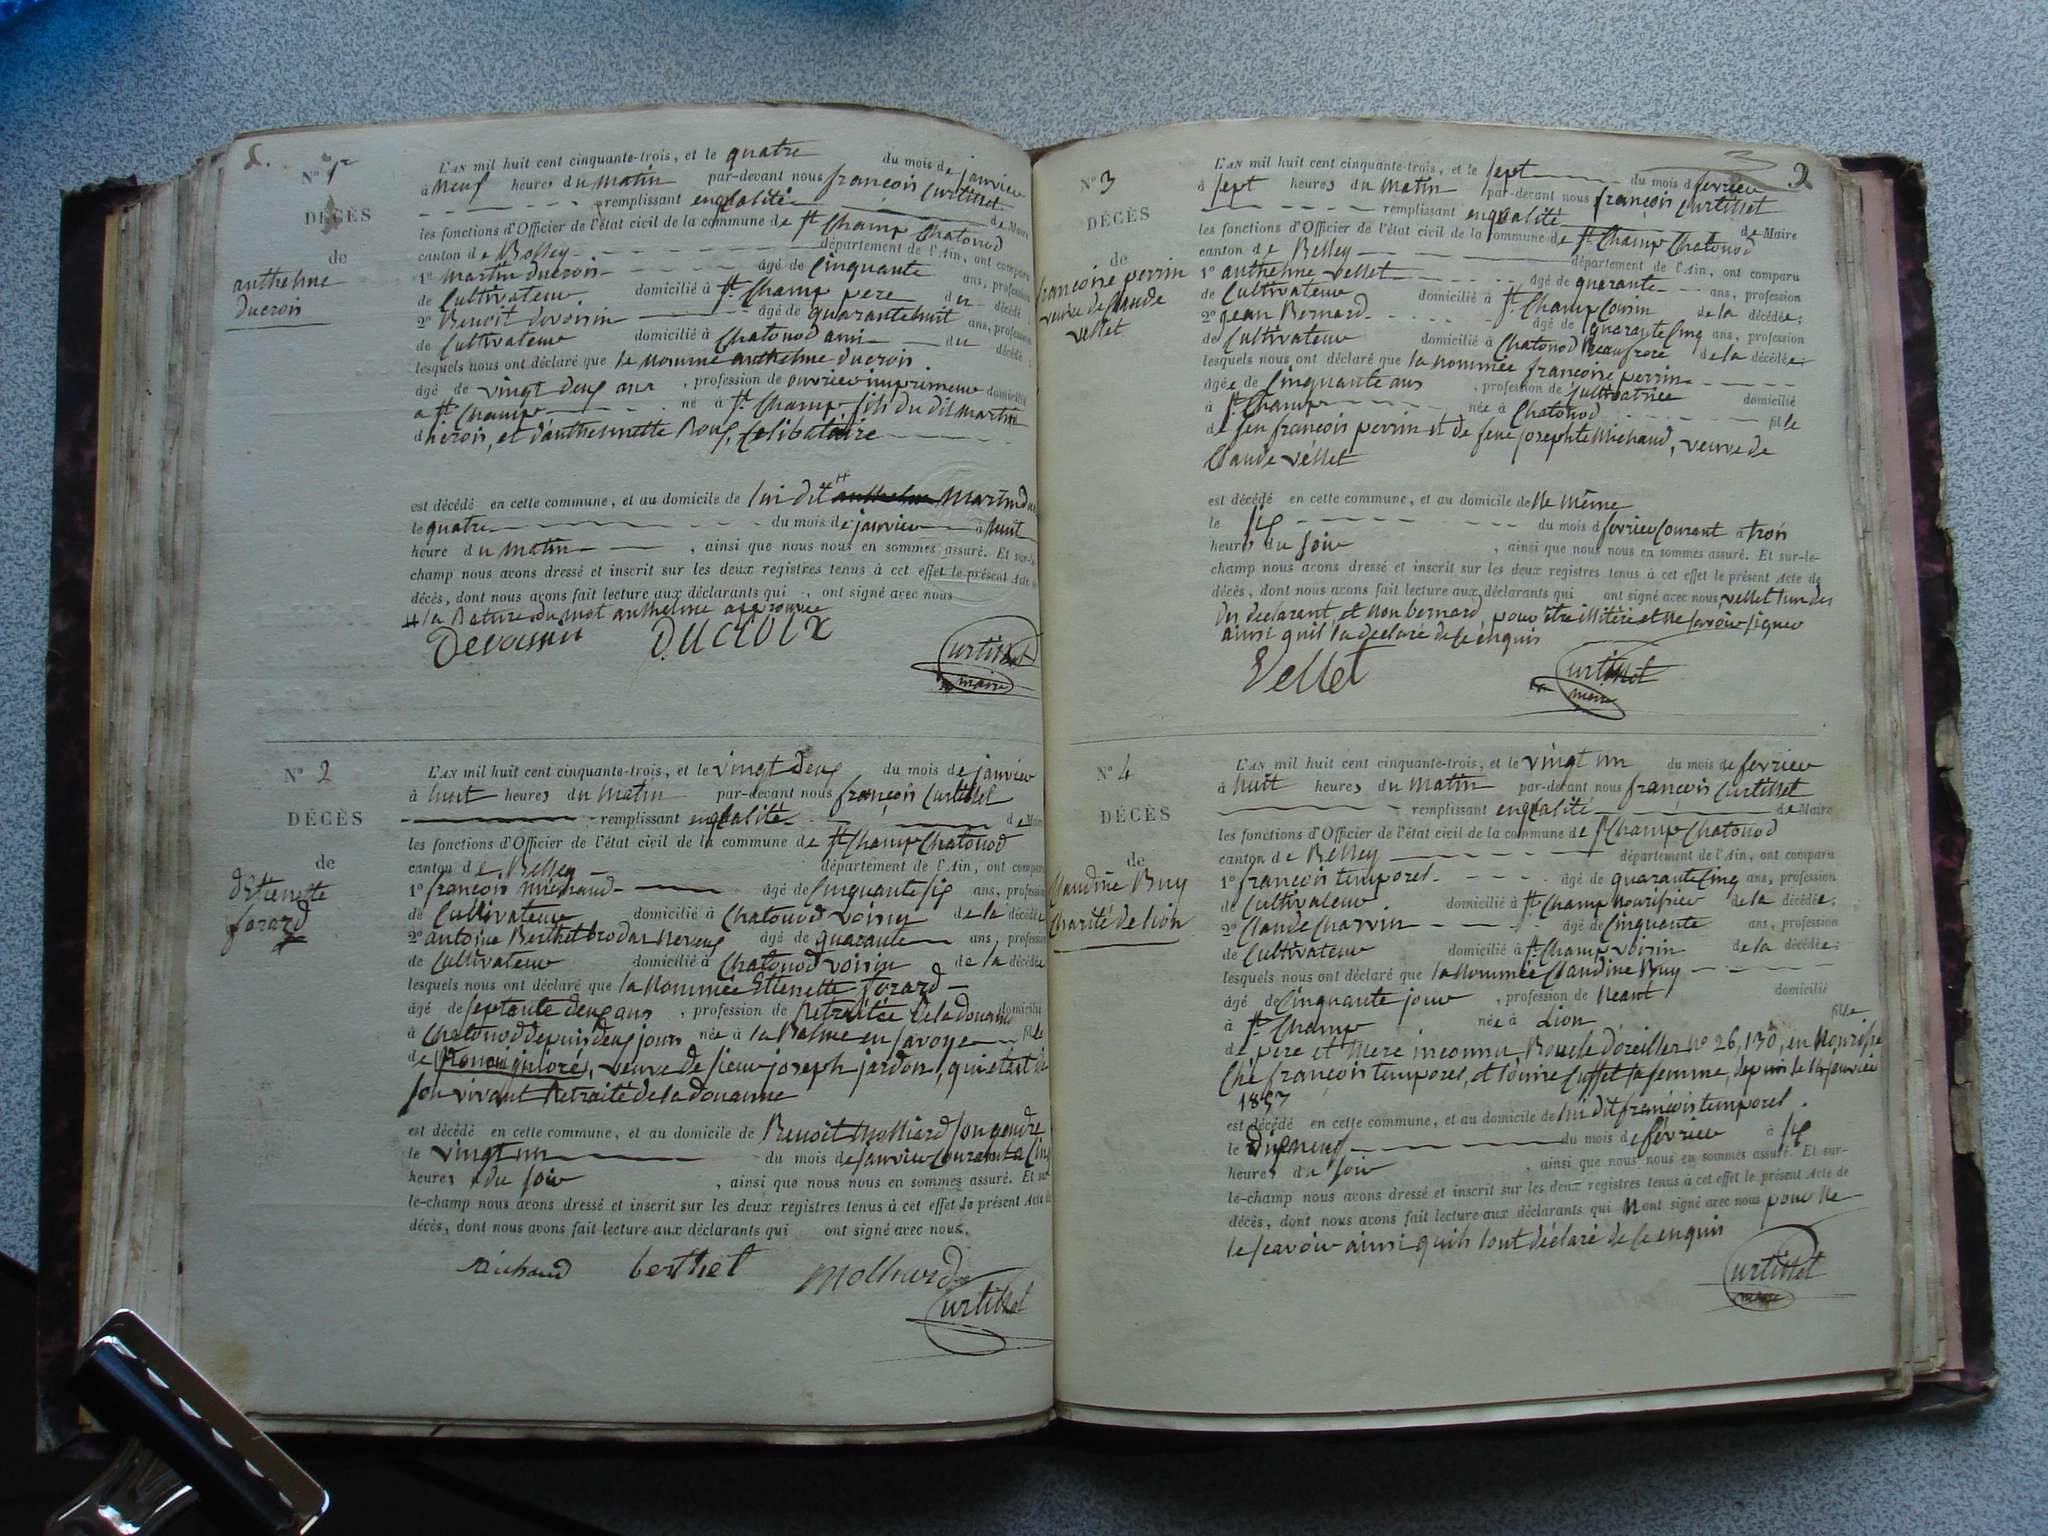 N° 1er
DÉCÈS
de
anthelme
ducroix
L'AN mil huit cent cinquante-trois, et le quatre du mois de janvier
à neuf heures du matin par-devant nous françois Curtillet
remplissant enqualité de Maire
les fonctions d'Officier de l'état civil de la commune de St Champ Chatonod
canton de Belley département de l'Ain, ont comparu
1° martin ducroix âgé de Cinquante ans, profession
de Cultivateur domicilié à St Champ pere du décédé
2° Benoit devoisin âgé de quarantehuit ans, profession
de Cultivateur domicilié à Chatonod ami du décédé
lesquels nous ont déclaré que le nommé anthelme ducroix
âgé de vingt deux ans , profession de ouvrier imprimeur domicilié
a St Champ né à St Champ fils du dit martin
et d'anthelmette Roux, Celibataire
est décédé en cette commune, et au domicile de lui dit anthelme Martin
le quatre du mois de janvier à huit
heure du matin , ainsi que nous nous en sommes assuré. Et sur-le-
champ nous avons dressé et inscrit sur les deux registres tenus à cet effet le présent Acte de
décès, dont nous avons fait lecture aux déclarants qui ont signé avec nous
la Rature du mot anthelme approuvée
Devoisin DUCROIX Curtillet
maire
N° 2
DÉCÈS
de
d'Etienette
forard
L'AN mil huit cent cinquante-trois, et le vingt deux du mois de janvier
à huit heures du matin par-devant nous françois Curtillet
remplissant enqualité de Maire
les fonctions d'Officier de l'état civil de la commune de St Champ Chatonod
canton de Belley département de l'Ain, ont comparu
1° françois michaud âgé de Cinquante six ans, profession
de Cultivateur domicilié à Chatonod voisin de la décédée
2° antoine Berthet brodar neveux âgé de quarante ans, profession
de Cultivateur domicilié à Chatonod voisin de la décédée
lesquels nous ont déclaré que la nommée Etienette forard
âgé de septante deux ans , profession de Retraitée de la douanne domicilié
à Chatonod depuis deux jours née à la Balme en savoye fille
de , veuve de sieur joseph jardon, qui était de
son vivant Retraité de la douanne
est décédé en cette commune, et au domicile de Benoit Molliard son gendre
le vingt un du mois de janvier Courant a Cinq
heures du soir , ainsi que nous nous en sommes assuré. Et sur-
le-champ nous avons dressé et inscrit sur les deux registres tenus à cet effet le présent Acte de
décès, dont nous avons fait lecture aux déclarants qui ont signé avec nous.
michaud berthet Molliard
Curtillet
2
N° 3
DÉCÈS
de
françoise perrin
veuve de Claude
vellet
L'AN mil huit cent cinquante-trois, et le sept du mois de fevrier
à sept heures du matin par-devant nous françois Curtillet
remplissant enqualité de Maire
les fonctions d'Officier de l'état civil de la commune de St Champ Chatonod
canton de Belley département de l'Ain, ont comparu
1° anthelme vellet âgé de quarante ans, profession
de Cultivateur domicilié à St Champ Cousin de la décédée;
2° jean Bernard âgé de quarante Cinq ans, profession
de Cultivateur domicilié à Chatonod Beaufrere de la décédée
lesquels nous ont déclaré que la nommée françoise perrin
âgée de Cinquante ans , profession de Cultivatrice domicilié
à St Champ née à Chatonod fille
de feu françois perrin et de feue josephte Michaud, veuve de
Claude vellet
est décédé en cette commune, et au domicile delle même
le six du mois d fevrier Courant a trois
heures du soir , ainsi que nous nous en sommes assuré. Et sur-le-
champ nous avons dressé et inscrit sur les deux registres tenus à cet effet le présent Acte de
décès, dont nous avons fait lecture aux déclarants qui ont signé avec nous, vellet l'un des
des declarant, et non bernard, pour être illitéré et ne savoir signer
ainsi quil la declaré de ce enquis
Vellet Curtillet
maire
N° 4
DÉCÈS
de
Claudine Buy
Charité de lion
L'AN mil huit cent cinquante-trois, et le vingt un du mois de fevrier
à huit heures du matin par-devant nous françois Curtillet
remplissant enqualité de Maire
les fonctions d'Officier de l'état civil de la commune de St Champ Chatonod
canton de Belley département de l'Ain, ont comparu
1° françois temporel âgé de quarante Cinq ans, profession
de Cultivateur domicilié à St Champ nourisier de la décédée;
2° Claude Charvin âgé de Cinquante ans, profession
de Cultivateur domicilié à St Champ voisin de la décédée;
lesquels nous ont déclaré que la nommée Claudine Buy
âgé de Cinquante jour , profession de Neant domicilié
à St Champ née à Lion fille
de pere et mere inconnu, Boucle d'oreilles n° 26,130, en Nourisse
Chez françois temporel, et louise Cuffet sa femme, depuis le 14 janvier
1853
est décédé en cette commune, et au domicile de lui dit françois temporel.
le dixneuf du mois de février à six
heures du soir , ainsi que nous nous en sommes assuré. Et sur-
le-champ nous avons dressé et inscrit sur les deux registres tenus à cet effet le présent Acte de
décès, dont nous avons fait lecture aux déclarants qui N ont signé avec nous pour ne
le scavoir ainsi quils lont déclaré de ce enquis
Curtillet
maire